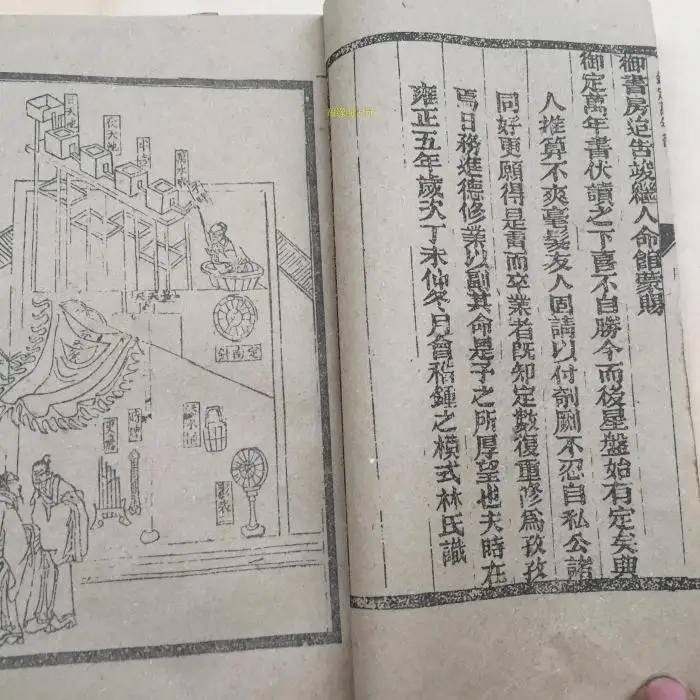 御書房迨告竣繼入命館蒙賜
御定萬年書伏讀之下喜不自勝今而後星盤始有定矣與
人推算不爽毫髮友人固請以付剞劂不忍自私公諸
同好更願得是書而卒業者既知定數復重修為孜孜
焉日務進德修業以副其命是予之所厚望也夫時在
雍正五年歲次丁未仲冬月會稽鍾之模式林氏識
夜天池
平壺
定南針